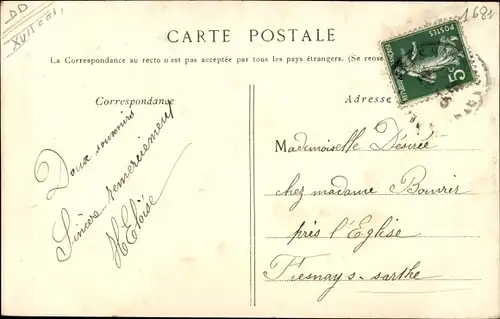 DD
1681
CARTE POSTALE
La Correspondance au recto n'est pas acceptée par tous les pays étrangers. (Se rense
Correspondance
Adresse
POSTES
5
Doux souvenirs
Sincère remerciement
Héloïse
Mademoiselle Désirée
chez madame Bouvrir
près l'Eglise
Fresnay s- sarthe